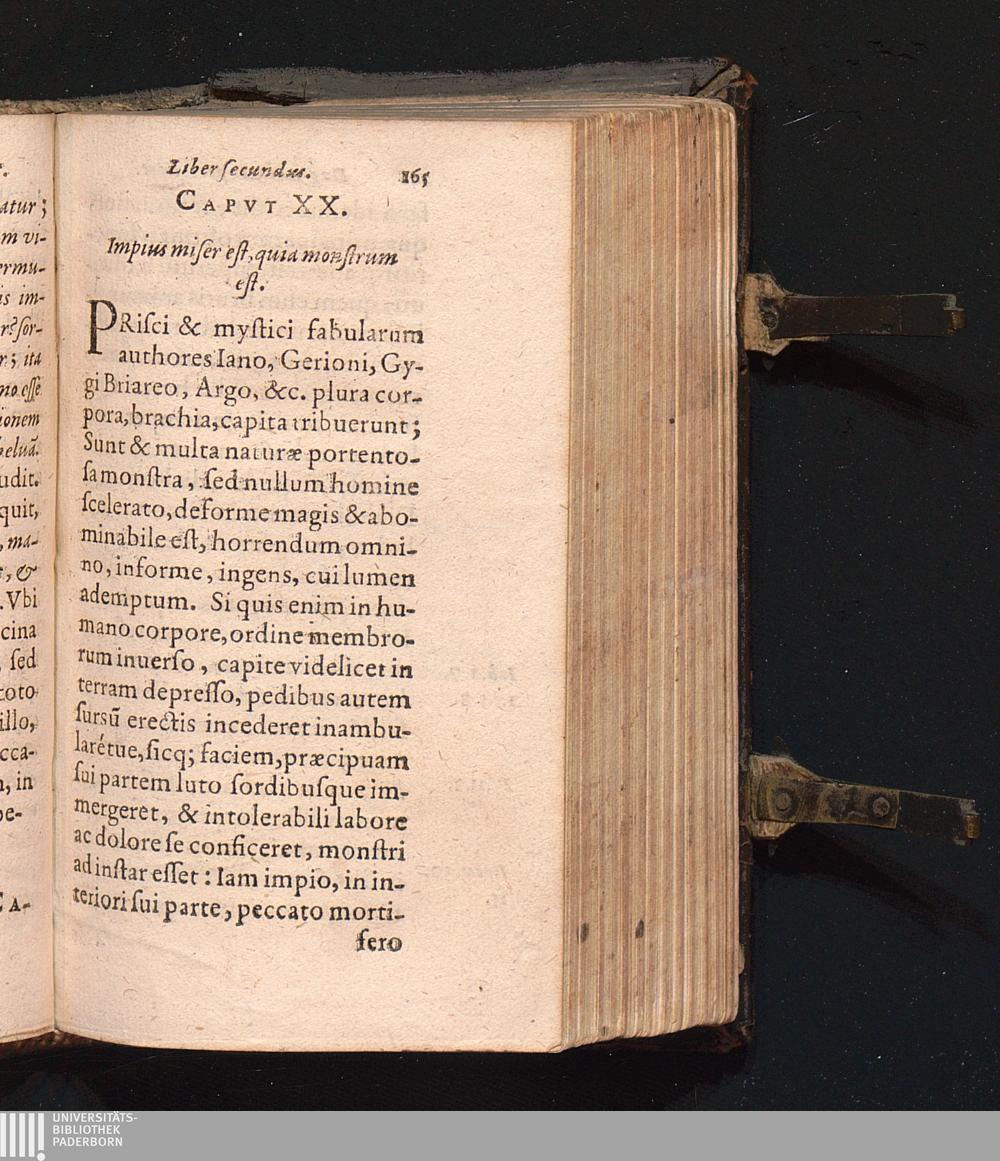 atur;
m vi-
ermu-
is im-
r; ita
no esse
ionem
beluã.
udit.
quit,
, ma-
, &
. Vbi
cina
, sed
toto
illo,
cca-
, in
pe-
CA-
Liber secundus. 165
CAPVT XX.
Impius miser est, quia monstrum
est.
PRisci & mystici fabularum
authores Iano, Gerioni, Gy-
gi Briareo, Argo, &c. plura cor-
pora, brachia, capita tribuerunt;
Sunt & multa naturæ portento-
sa monstra, sed nullum homine
scelerato, deforme magis & abo-
minabile est, horrendum omni-
no, informe, ingens, cui lumen
ademptum. Si quis enim in hu-
mano corpore, ordine membro-
rum inuerso, capite videlicet in
terram depresso, pedibus autem
sursũ erectis incederet inambu-
larétue, sicq; faciem, præcipuam
sui partem luto sordibusque im-
mergeret, & intolerabili labore
ac dolore se conficeret, monstri
ad instar esset: Iam impio, in in-
teriori sui parte, peccato morti-
fero
UNIVERSITÄTS-
BIBLIOTHEK
PADERBORN